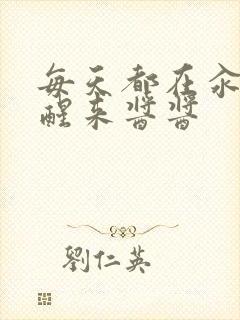 每天都在汆
醒来酱酱
劉仁英